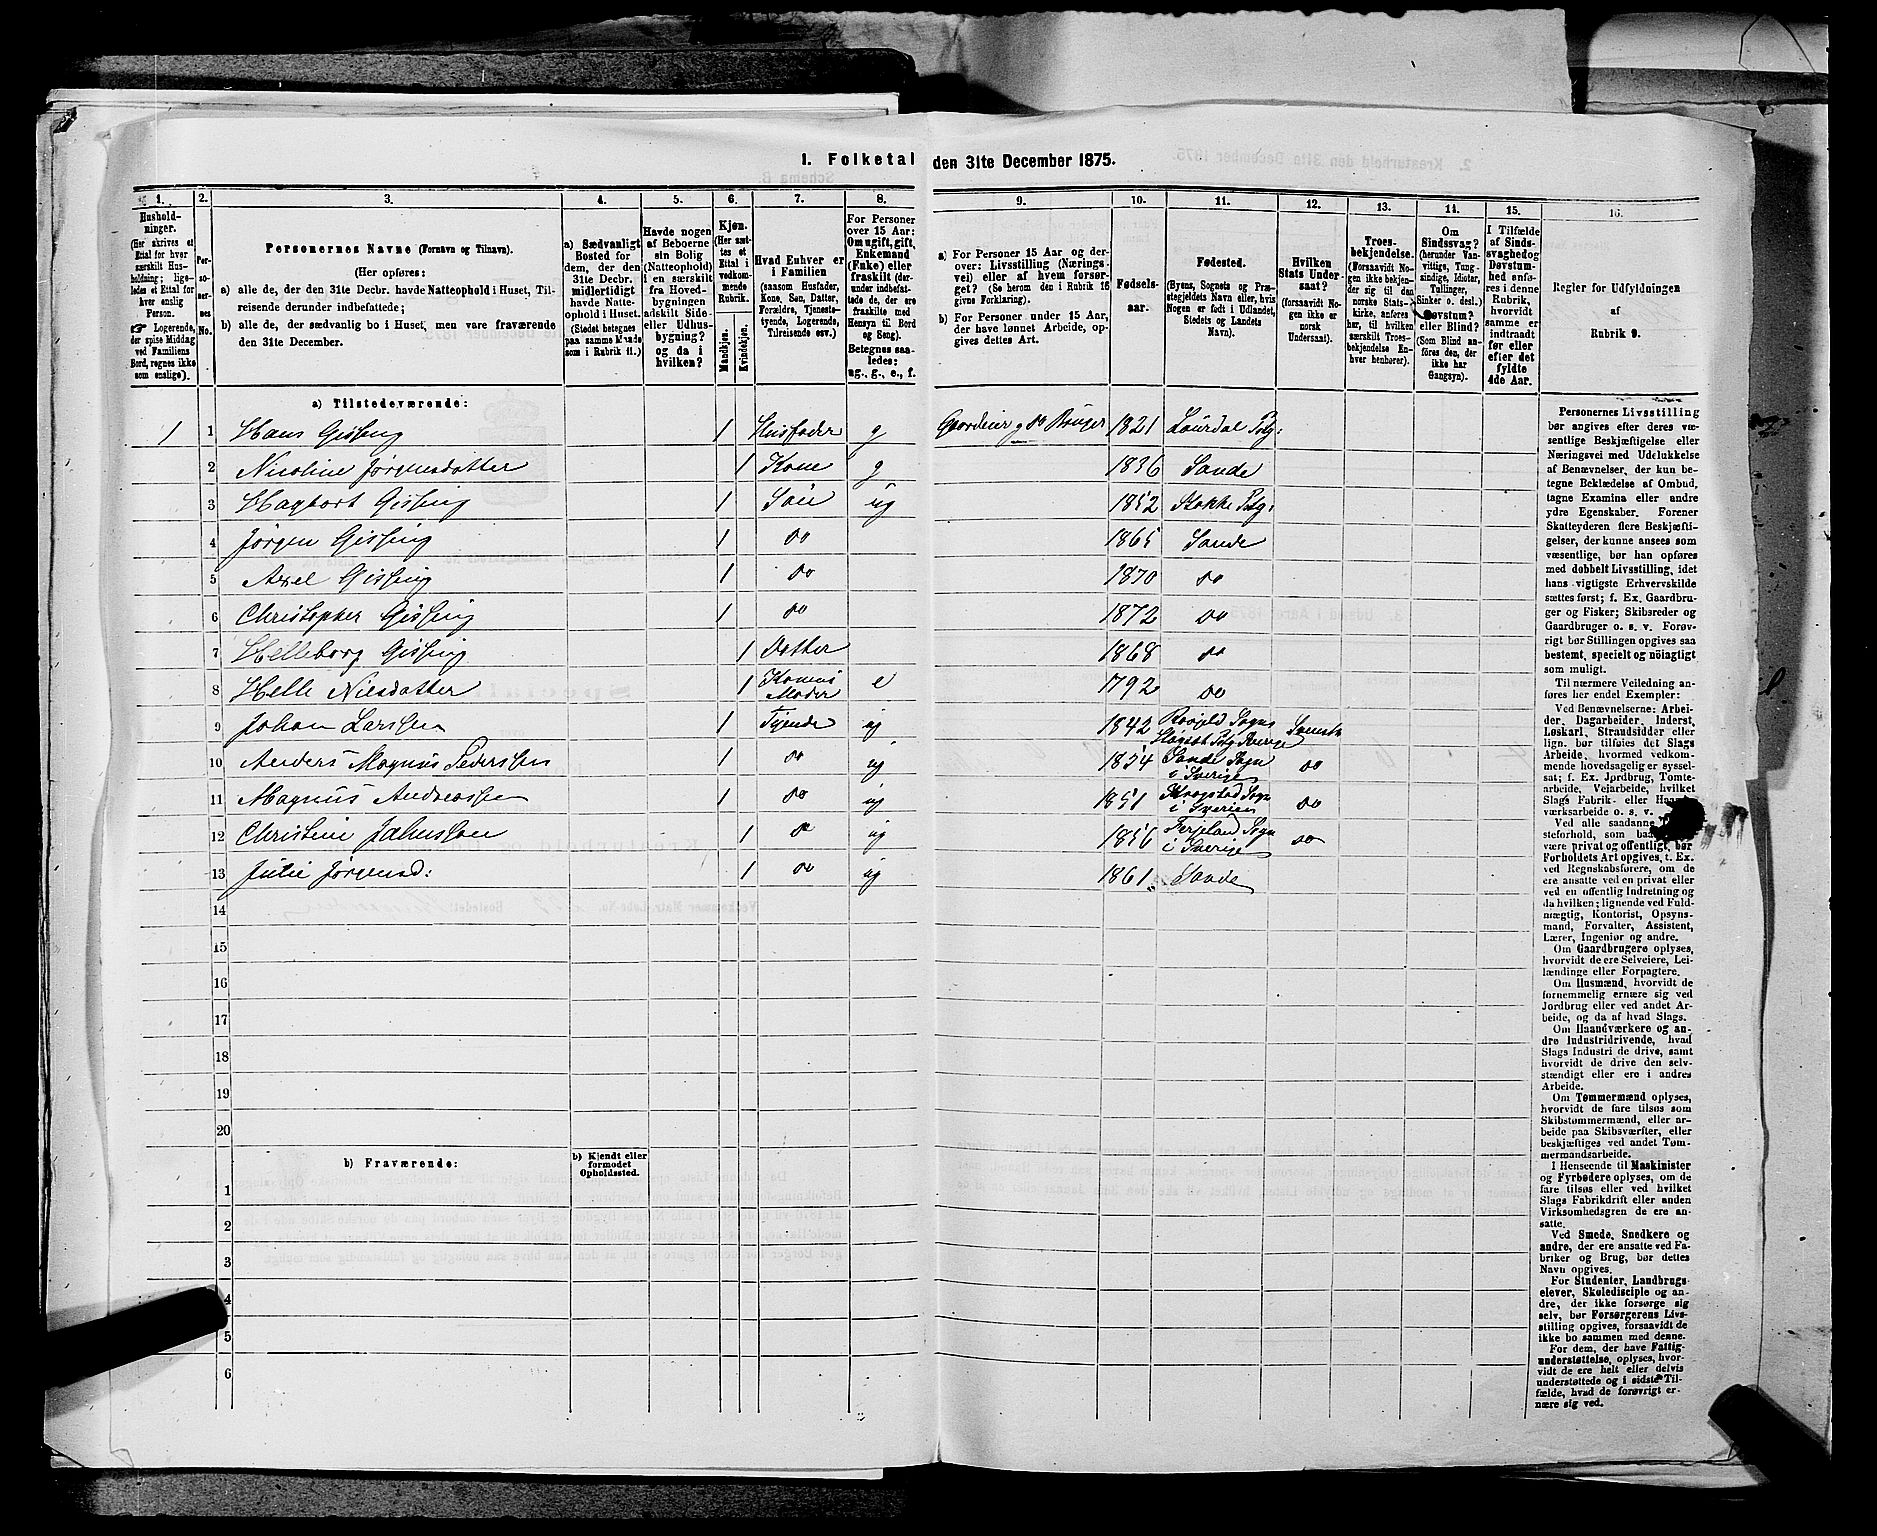 1. Folketal den 31te December 1875.
1. 2. 3. 4. 5. 6. 7. 8. 9. 10. 11. 12. 13. 14. 15. 16.
Hushold-
ninger.
(Her skrives et
Ettal for hver
særskilt Hus-
holdning; lige-
ledes et Ettal for
hver enslig
Person.
☞ Logerende,
der spise Middag
ved Familiens
Bord, regnes ikke
som enslige).
Per-
so-
ner-
nes
No.
Personernes Navne (Fornavn og Tilnavn).
(Her opføres:
a) alle de, der den 31te Decbr. havde Natteophold i Huset, Til-
reisende derunder indbefattede;
b) alle de, der sædvanlig bo i Huset, men vare fraværende
den 31te December.
a) Sædvanligt
Bosted for
dem, der den
31te Decbr.
midlertidigt
havde Natte-
ophold i Huset.
(Stedet betegnes
paa samme Maade
som i Rubrik 11.)
Havde nogen
af Beboerne
sin Bolig
(Natteophold)
i en særskilt
fra Hoved-
bygningen
adskilt Side-
eller Udhus-
bygning?
og da i
hvilken?
Kjøn.
(Her sæt-
tes et
Ettal i
vedkom-
mende
Rubrik.
Mandkjøn.
Kvindekjøn.
Hvad Enhver er
i Familien
(saasom Husfader,
Kone, Søn, Datter,
Forældre, Tjeneste-
tyende, Logerende,
Tilreisende osv.)
For Personer
over 15 Aar:
Om ugift, gift,
Enkemand
(Enke) eller
fraskilt (der-
under indbefat-
tede de, der ere
fraskilte med
Hensyn til Bord
og Seng).
Betegnes saa-
ledes:
ug., g., e., f.
a) For Personer 15 Aar og der-
over: Livsstilling (Nærings-
vei) eller af hvem forsør-
get? (Se herom den i Rubrik 16
givne Forklaring).
b) For Personer under 15 Aar,
der have lønnet Arbeide, op-
gives dettes Art.
Fødsels-
aar.
Fødested.
(Byens, Sognets og Præ-
stegjeldets Navn eller, hvis
Nogen er født i Udlandet,
Stedets og Landets
Navn).
Hvilken
Stats Under-
saat?
(forsaavidt No-
gen ikke er
norsk
Undersaat).
Troes-
bekjendelse.
(Forsaavidt No-
gen ikke bekjen-
der sig til den
norske Stats-
kirke, anføres
her, til hvilken
særskilt Troes-
bekjendelse En-
hver henhører).
Om
Sindssvag?
(herunder Van-
vittige, Tung-
sindige, Idioter,
Tullinger,
Sinker o. desl.)
Døvstum?
eller Blind?
(Som Blind an-
føres den, der
ikke har
Gangsyn).
I Tilfælde
af Sinds-
svaghed og
Døvstum-
hed anfø-
res i denne
Rubrik,
hvorvidt
samme er
indtraadt
før eller
efter det
fyldte
4de Aar.
Regler for Udfyldningen
af
Rubrik 9.
a) Tilstedeværende:
1 1 Hans Gissing 1 Husfader g Gaardeier og do Bruger 1821 Laurdal Prlg:
2 Nicoline Jørgensdatter 1 Kone g 1836 Sande
3 Hagbart Gissing 1 Søn ug 1852 Stokke Prlg:
4 Jørgen Gissing 1 do 1865 Sande
5 Axel Gissing 1 do 1870 do
6 Christopher Gissing 1 do 1872 do
7 Helleborg Gissing 1 Datter 1868 do
8 Helle Nilsdatter 1 Konens Moder e 1792 do
9 Johan Larssen 1 Tjende ug 1842 Sogns Prlg Sverige Svensk
10 Anders Magnus Pederssen 1 do ug 1854 Sande Sogn i Sverige do
11 Magnus Andreassen 1 do ug 1851 Sogn i Sverige do
12 Christine Johnssen 1 do ug 1856 Sogn i Sverige do
13 Julie Jørgensd: 1 do ug 1861 Sande
14
15
16
17
18
19
20
b) Fraværende:
b) Kjendt eller
formodet
Opholdssted.
1
2
3
4
5
6
Personernes Livsstilling
bør angives efter deres væ-
sentlige Beskjæftigelse eller
Næringsvei med Udelukkelse
af Benævnelser, der kun be-
tegne Beklædelse af Ombud,
tagne Examina eller andre
ydre Egenskaber. Forener
Skatteyderen flere Beskjæfti-
gelser, der kunne ansees som
væsentlige, bør han opføres
med dobbelt Livsstilling, idet
hans vigtigste Erhvervskilde
sættes først; f. Ex. Gaardbru-
ger og Fisker; Skibsreder og
Gaardbruger o. s. v. Forøv-
rigt bør Stillingen opgives saa
bestemt, specielt og nøiagtigt
som muligt.
Til nærmere Veiledning an-
føres her endel Exempler:
Ved Benævnelserne: Arbei-
der, Dagarbeider, Inderst,
Løskarl, Strandsidder eller
lign. bør tilføies det Slags
Arbeide, hvormed vedkom-
mende hovedsagelig er syssel-
sat; f. Ex. Jordbrug, Tomte-
arbeide, Veiarbeide, hvilket
Slags Fabrik- eller Haand-
værksarbeide o. s. v.
Ved alle saadanne
steforhold, som baade
være privat og offentligt, bør
Forholdets Art opgives, t. Ex.
ved Regnskabsførere, om de
ere ansatte ved en privat eller
ved en offentlig Indretning og
da hvilken; lignende ved Fuld-
mægtig, Kontorist, Opsyns-
mand, Forvalter, Assistent,
Lærer, Ingeniør og andre.
Om Gaardbrugere oplyses,
hvorvidt de ere Selveiere, Lei-
lændinge eller Forpagtere.
Om Husmænd, hvorvidt de
fornemmelig ernære sig ved
Jordbrug eller ved andet Ar-
beide, og da af hvad Slags.
Om Haandværkere og an-
dre Industridrivende, hvad
Slags Industri de drive, samt
hvorvidt de drive den selv-
stændigt eller ere i andres
Arbeide.
Om Tømmermænd oplyses,
hvorvidt de fare tilsøs som
Skibstømmermænd, eller ar-
beide paa Skibsværfter, eller
beskjæftiges ved andet Tøm-
mermandsarbeide.
I Henseende til Maskinister
og Fyrbødere oplyses, om de
fare tilsøs eller ved hvilket
Slags Fabrikdrift eller anden
Virksomhedsgren de ere an-
satte.
Ved Smede, Snedkere og
andre, der ere ansatte ved Fa-
briker og Brug, bør dettes
Navn opgives.
For Studenter, Landbrugs-
elever, Skoledisciple og an-
dre, der ikke forsørge sig
selv, bør Forsørgerens Livs-
stilling opgives, forsaavidt de
ikke bo sammen med denne.
For dem, der have Fattig-
understøttelse, oplyses, hvor-
vidt de ere helt eller delvis
understøttede og i sidste Til-
fælde, hvad de forøvrigt er-
nære sig ved.